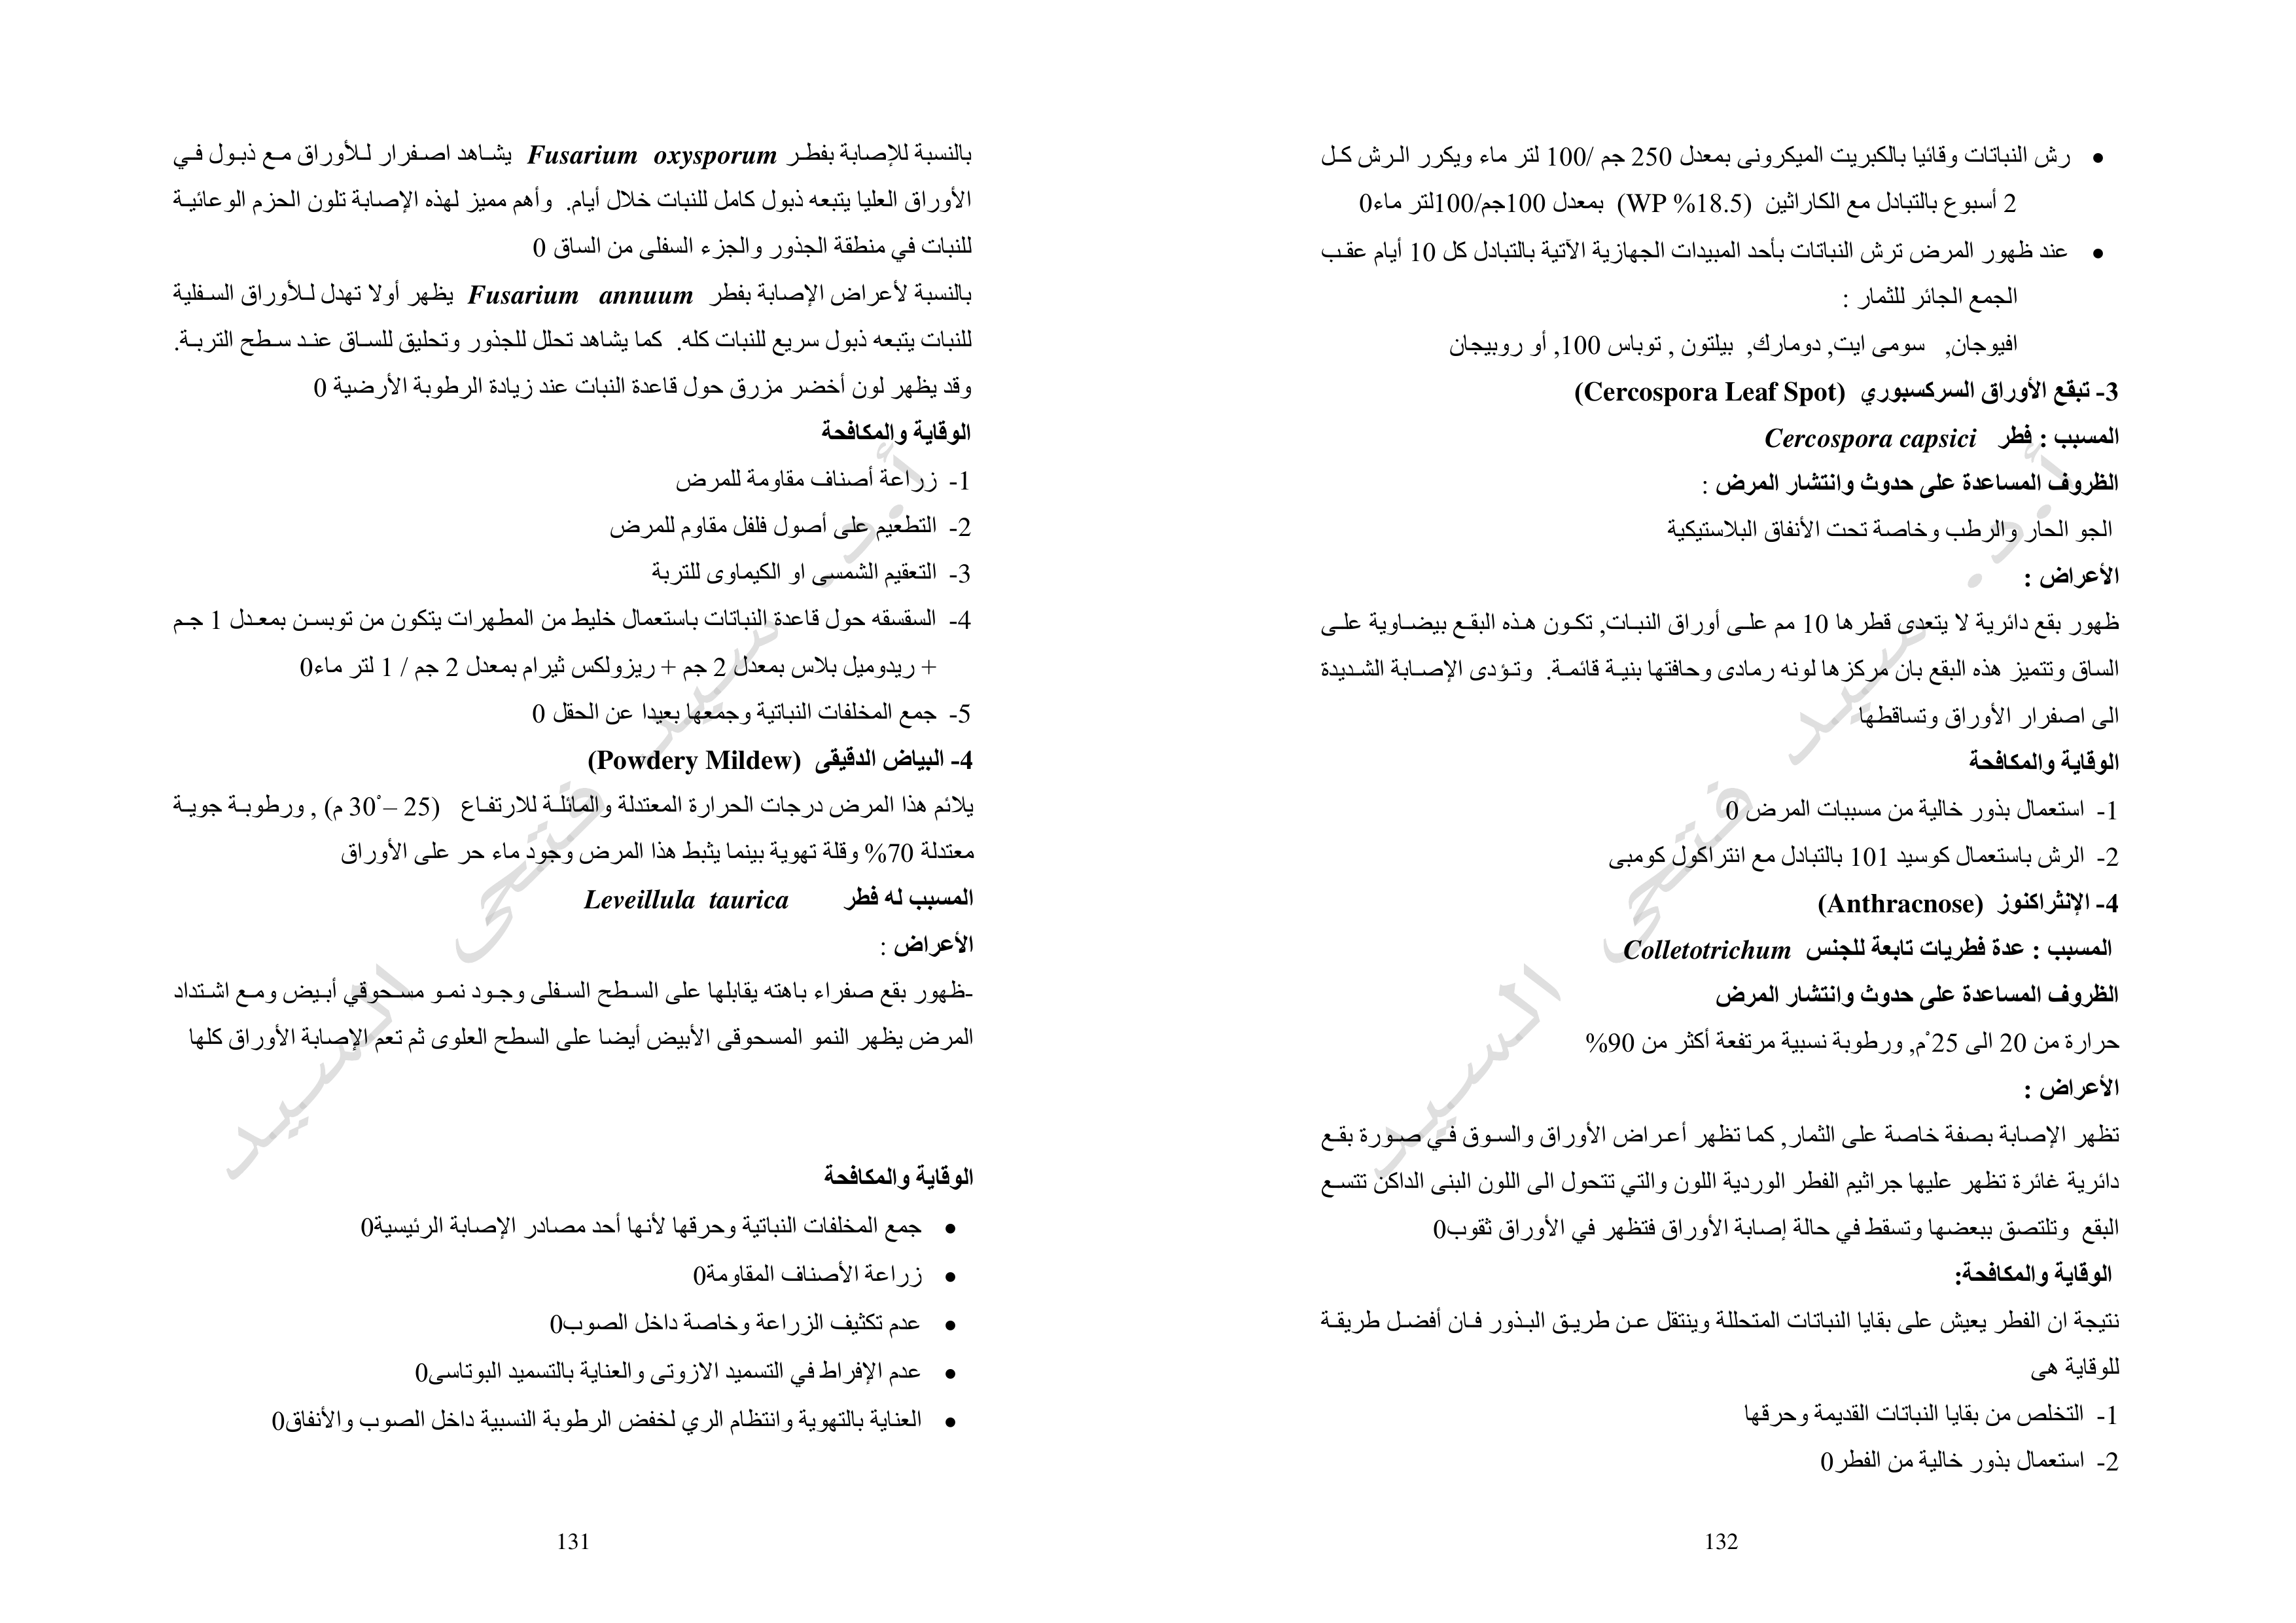 بالنسبة للإصابة بفطر Fusarium oxysporum يشاهد اصفرار للأوراق مع ذبول في
الأوراق العليا يتبعه ذبول كامل للنبات خلال أيام. وأهم مميز لهذه الإصابة تلون الحزم الوعائية
للنبات في منطقة الجذور والجزء السفلى من الساق 0
بالنسبة لأعراض الإصابة بفطر Fusarium annuum يظهر أولا تهدل للأوراق السفلية
للنبات يتبعه ذبول سريع للنبات كله. كما يشاهد تحلل للجذور وتحليق للساق عند سطح التربة.
وقد يظهر لون أخضر مزرق حول قاعدة النبات عند زيادة الرطوبة الأرضية 0
الوقاية والمكافحة
1- زراعة أصناف مقاومة للمرض
2- التطعيم على أصول فلفل مقاوم للمرض
3- التعقيم الشمسى او الكيماوى للتربة
4- السقسقه حول قاعدة النباتات باستعمال خليط من المطهرات يتكون من توبسن بمعدل 1 جم
+ ريدوميل بلاس بمعدل 2 جم + ريزولكس ثيرام بمعدل 2 جم / 1 لتر ماء0
5- جمع المخلفات النباتية وجمعها بعيدا عن الحقل 0
4- البياض الدقيقى (Powdery Mildew)
يلائم هذا المرض درجات الحرارة المعتدلة والمائلة للارتفاع (25 – 30ْ م) , ورطوبة جوية
معتدلة 70% وقلة تهوية بينما يثبط هذا المرض وجود ماء حر على الأوراق
المسبب له فطر Leveillula taurica
الأعراض :
-ظهور بقع صفراء باهته يقابلها على السطح السفلى وجود نمو مسحوقي أبيض ومع اشتداد
المرض يظهر النمو المسحوقى الأبيض أيضا على السطح العلوى ثم تعم الإصابة الأوراق كلها
الوقاية والمكافحة
• جمع المخلفات النباتية وحرقها لأنها أحد مصادر الإصابة الرئيسية0
• زراعة الأصناف المقاومة0
• عدم تكثيف الزراعة وخاصة داخل الصوب0
• عدم الإفراط في التسميد الازوتى والعناية بالتسميد البوتاسى0
• العناية بالتهوية وانتظام الري لخفض الرطوبة النسبية داخل الصوب والأنفاق0
131
• رش النباتات وقائيا بالكبريت الميكرونى بمعدل 250 جم /100 لتر ماء ويكرر الرش كل
2 أسبوع بالتبادل مع الكاراثين (WP %18.5) بمعدل 100جم/100لتر ماء0
• عند ظهور المرض ترش النباتات بأحد المبيدات الجهازية الآتية بالتبادل كل 10 أيام عقب
الجمع الجائر للثمار :
افيوجان, سومى ايت, دومارك, بيلتون , توباس 100, أو روبيجان
3- تبقع الأوراق السركسبوري (Cercospora Leaf Spot)
المسبب : فطر Cercospora capsici
الظروف المساعدة على حدوث وانتشار المرض :
الجو الحار والرطب وخاصة تحت الأنفاق البلاستيكية
الأعراض :
ظهور بقع دائرية لا يتعدى قطرها 10 مم على أوراق النبات, تكون هذه البقع بيضاوية على
الساق وتتميز هذه البقع بان مركزها لونه رمادى وحافتها بنية قائمة. وتؤدى الإصابة الشديدة
الى اصفرار الأوراق وتساقطها
الوقاية والمكافحة
1- استعمال بذور خالية من مسببات المرض 0
2- الرش باستعمال كوسيد 101 بالتبادل مع انتراكول كومبى
4- الإنثراكنوز (Anthracnose)
المسبب : عدة فطريات تابعة للجنس Colletotrichum
الظروف المساعدة على حدوث وانتشار المرض
حرارة من 20 الى 25ْم, ورطوبة نسبية مرتفعة أكثر من 90%
الأعراض :
تظهر الإصابة بصفة خاصة على الثمار, كما تظهر أعراض الأوراق والسوق في صورة بقع
دائرية غائرة تظهر عليها جراثيم الفطر الوردية اللون والتي تتحول الى اللون البنى الداكن تتسع
البقع وتلتصق ببعضها وتسقط في حالة إصابة الأوراق فتظهر في الأوراق ثقوب0
الوقاية والمكافحة:
نتيجة ان الفطر يعيش على بقايا النباتات المتحللة وينتقل عن طريق البذور فان أفضل طريقة
للوقاية هى
1- التخلص من بقايا النباتات القديمة وحرقها
2- استعمال بذور خالية من الفطر0
132
أ.د. سيد فتحى السيد
أ.د. سيد فتحى السيد